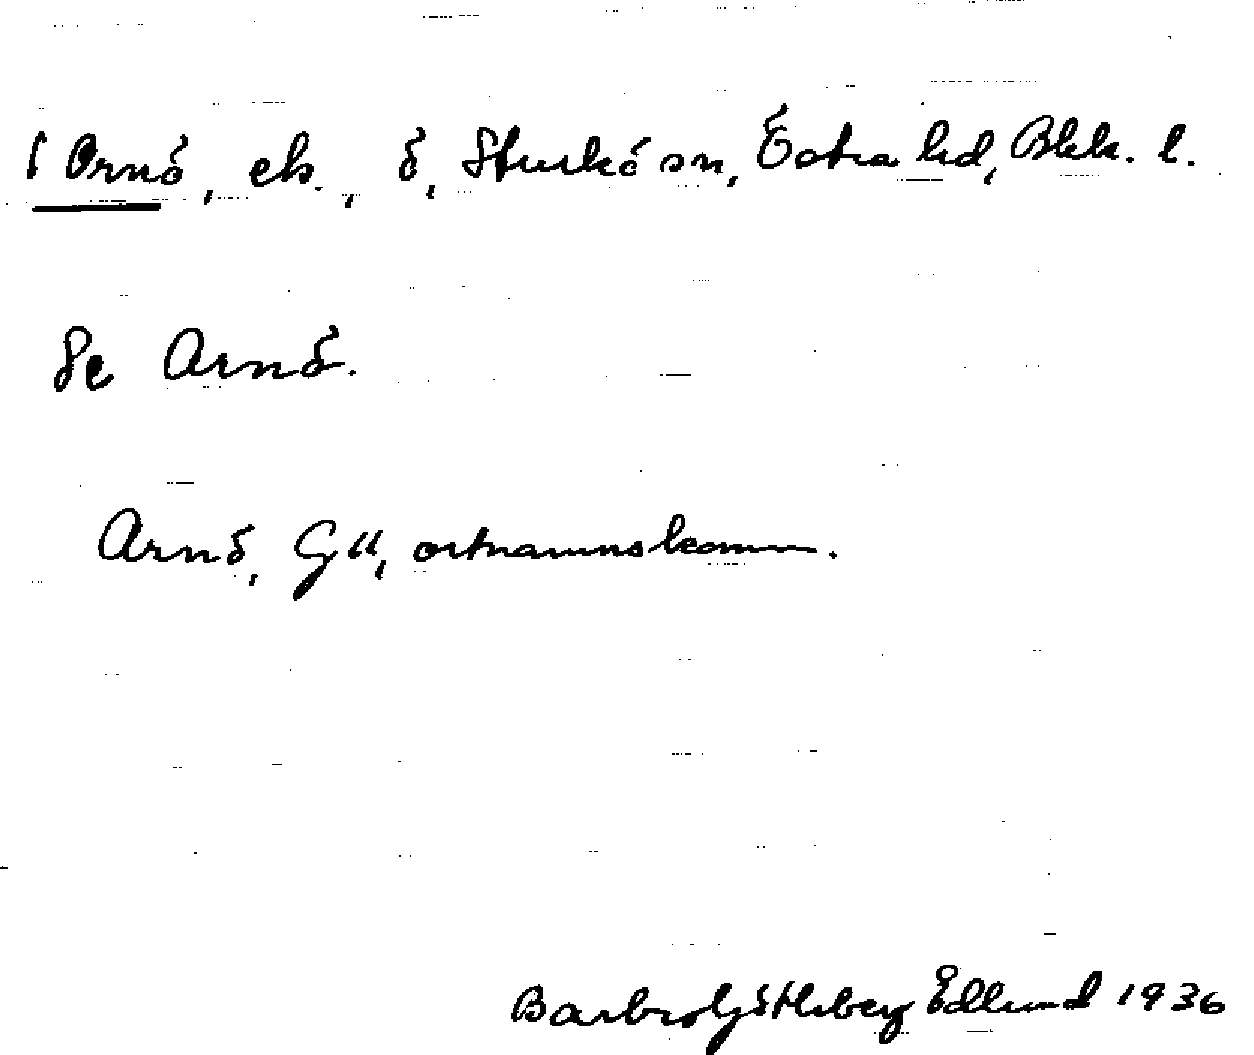 1 Ornö, ek., ö, Sturkö sn, Östra hd, Blek. l.
Se Arnö.
Arnö, GK, ortnamnskomm.
Barbro Götheberg Edlund 1936